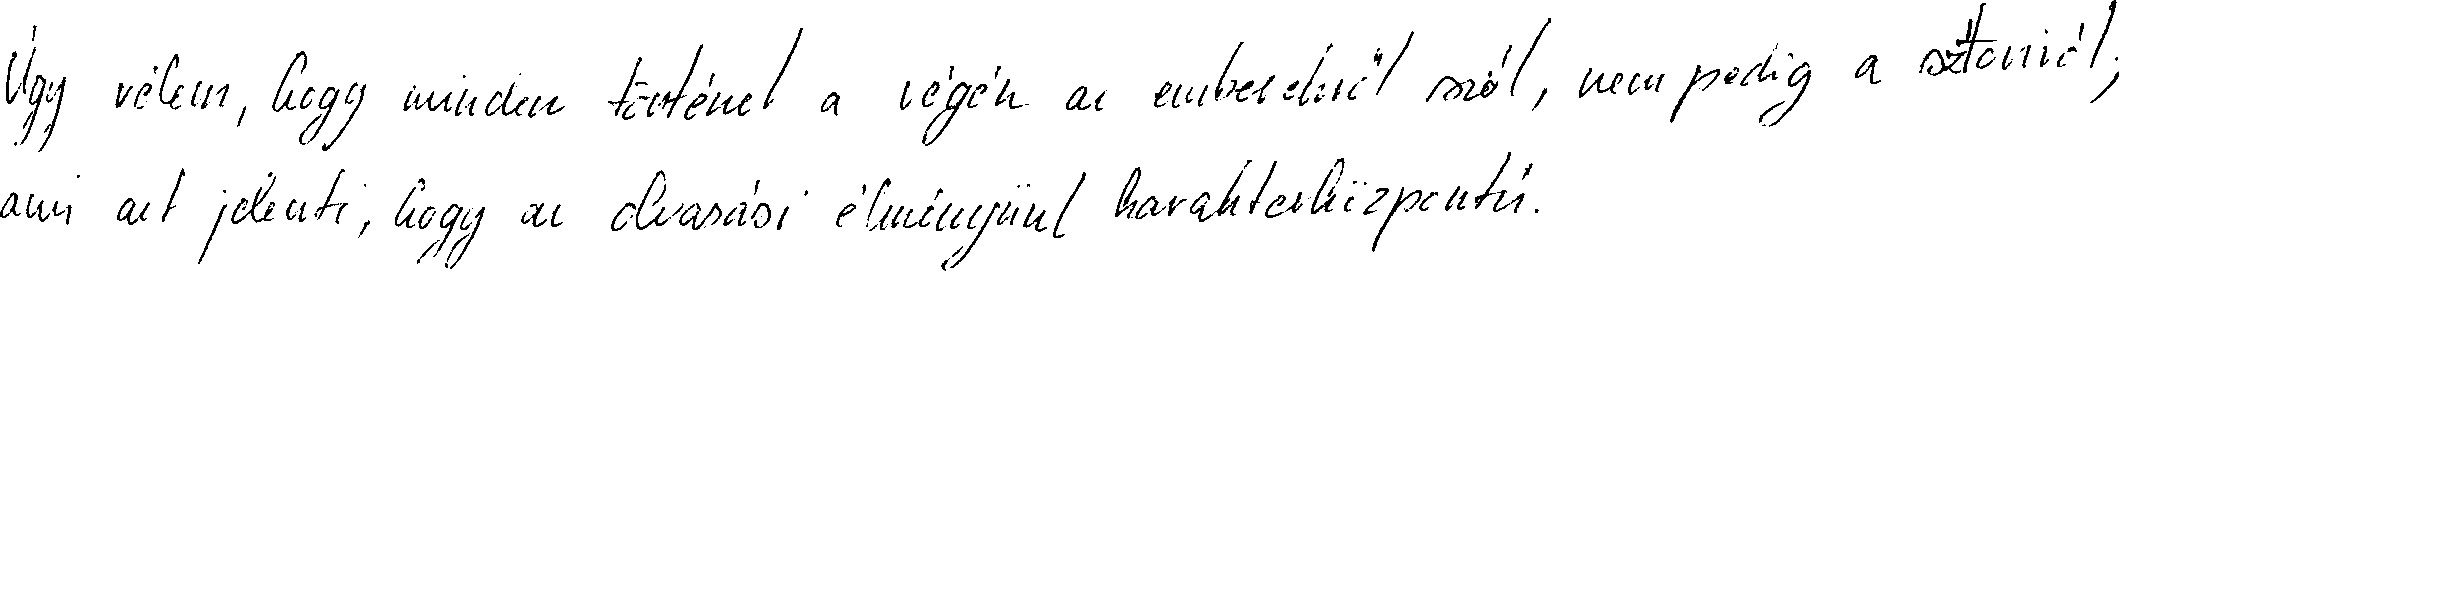 Úgy vélem, hogy minden történet a végén az emberekről szól, nem pedig a sztoriról,
ami azt jelenti, hogy az olvasási élményünk karakterközpontú.